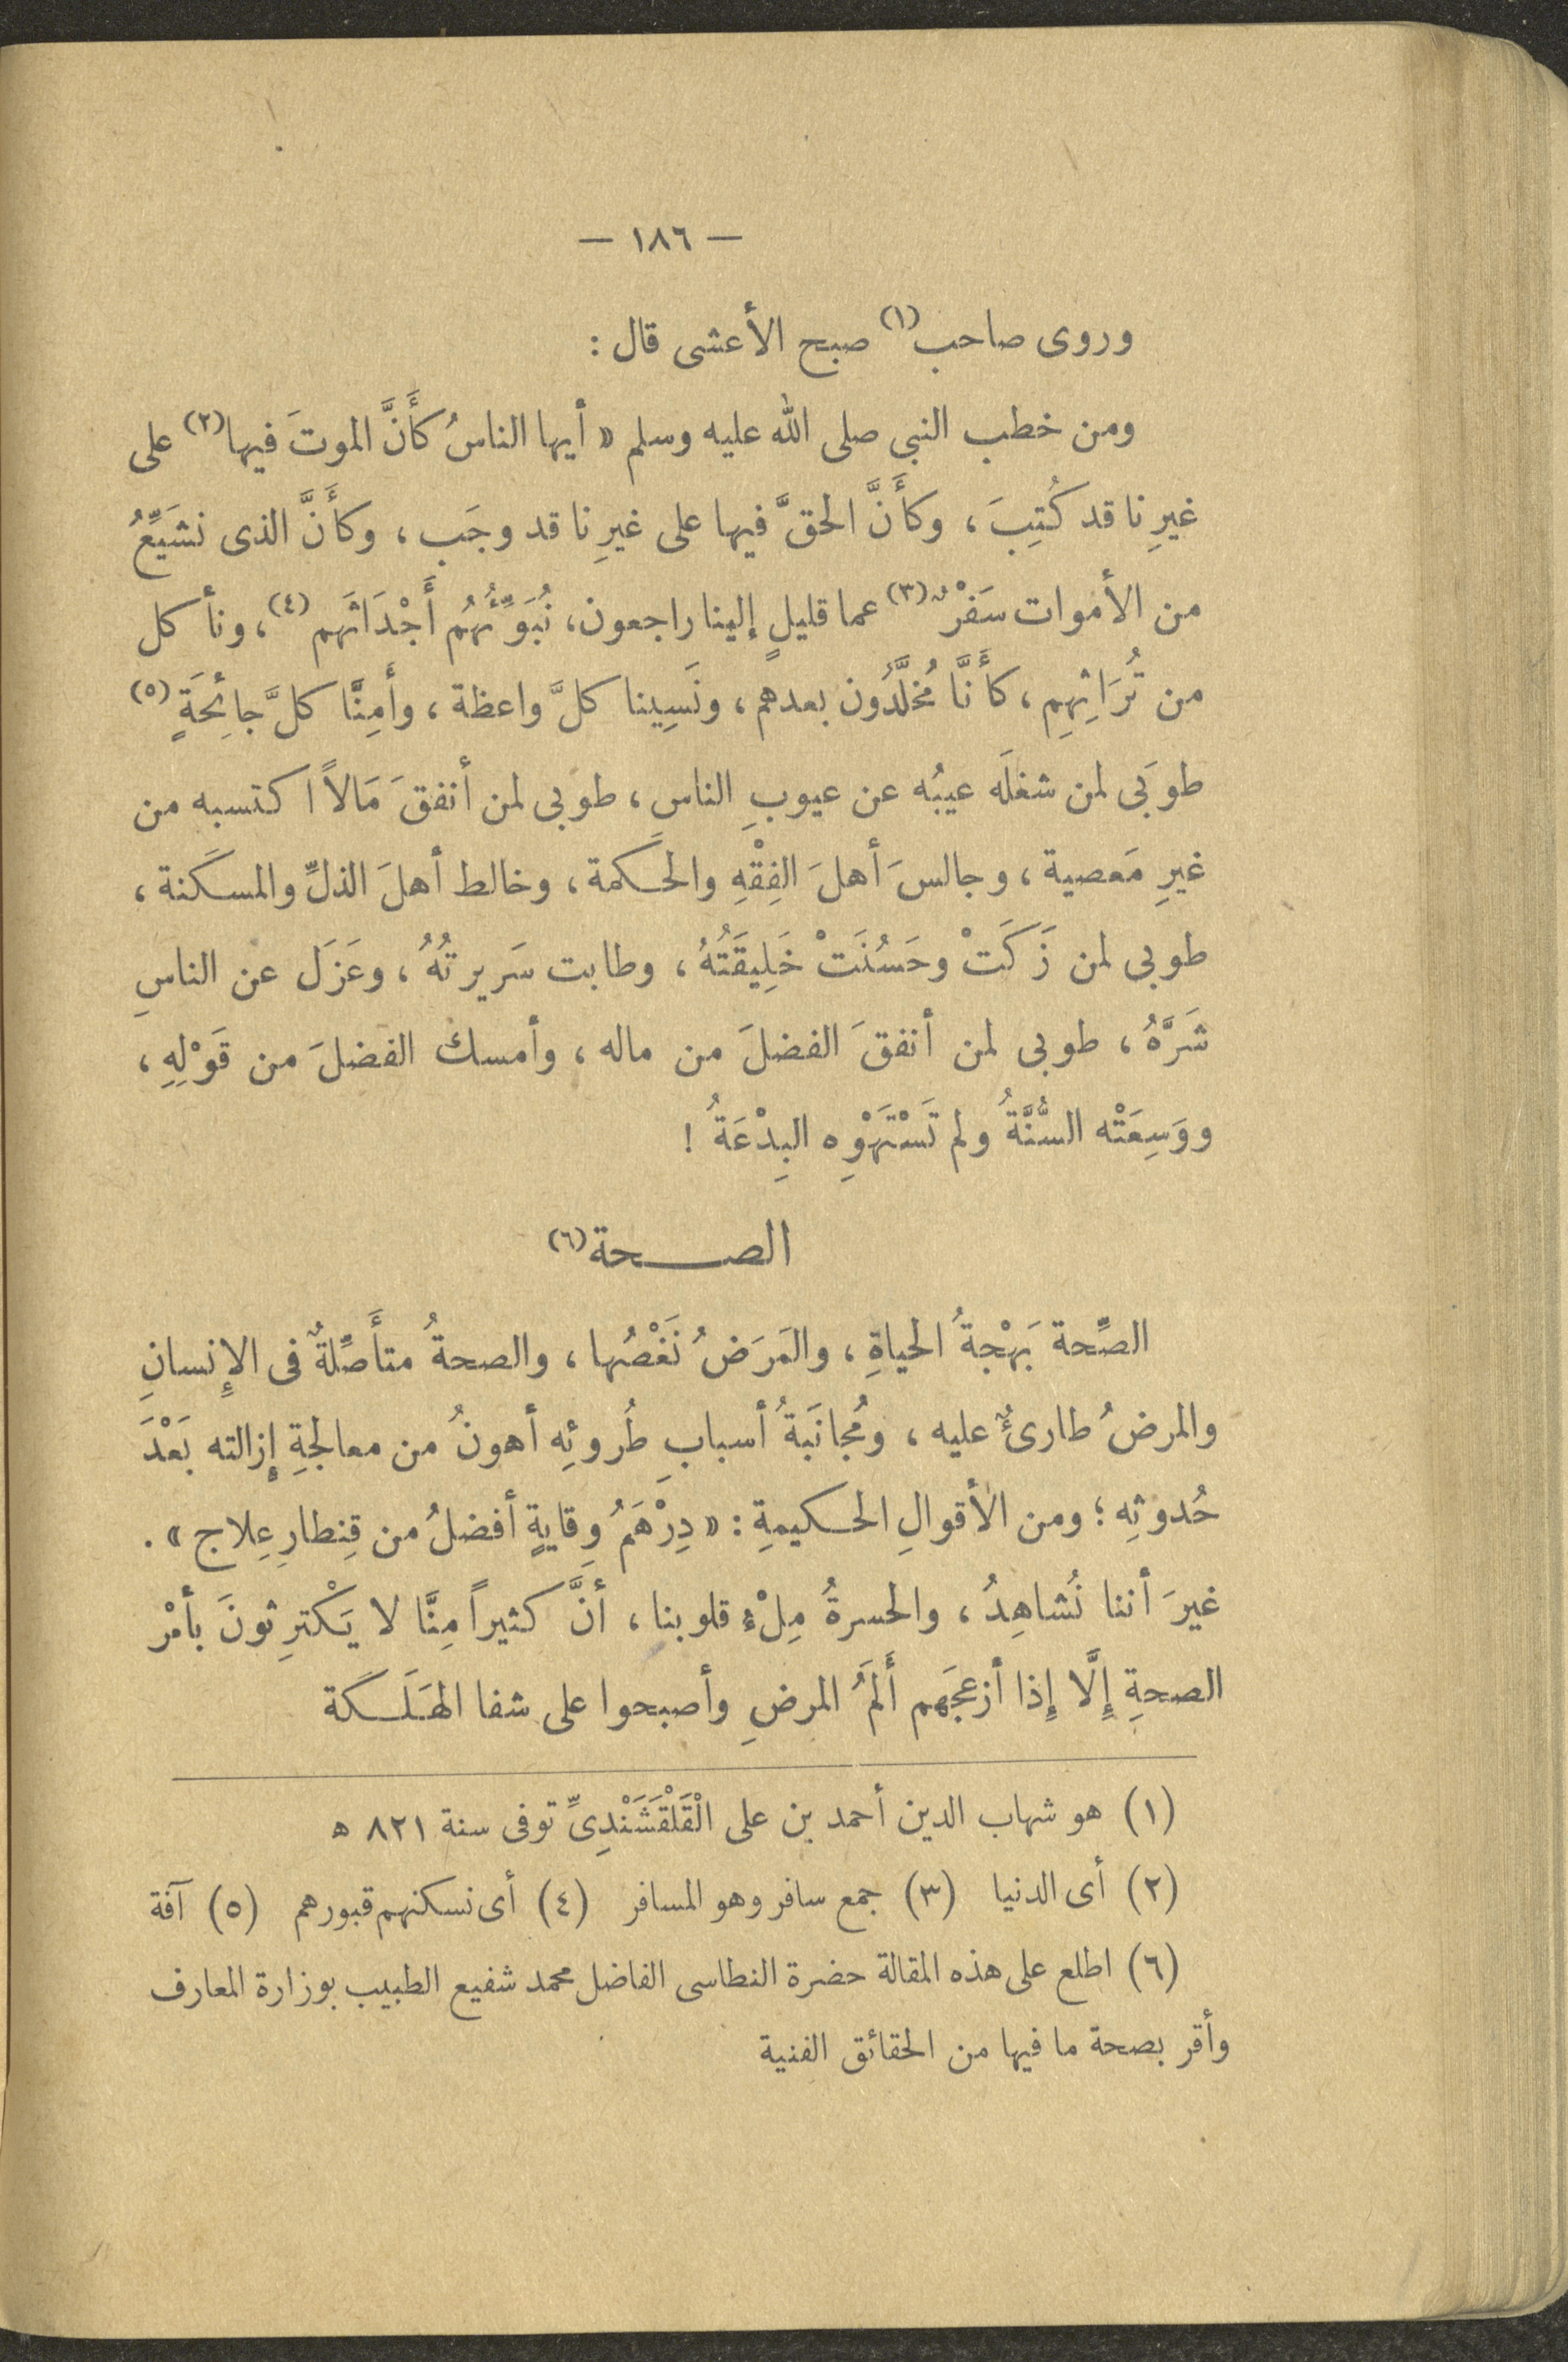 — ١٨٦ —
وروى صاحب(١) صبح الأعشى قال :
ومن خطب النبي صلى الله عليه وسلم « أيها الناسُ كأَنَّ الموتَ فيها(٢) على
غيرِنا قد كُتِبَ ، وكأَنَّ الحقَّ فيها على غيرِنا قد وجَب ، وكأَنَّ الذى نشَيِّعُ
من الأموات سَفْرٌ(٣) عما قليلٍ إلينا راجعون، نُبَوِّئُهُم أَجْدَاثَهم(٤)، ونأكل
من تُرَاثِهِم ، كأَنَّا مُخَلَّدُون بعدهم ، ونَسِينا كلَّ واعظة ، وأَمِنَّا كلَّ جائِحَةٍ(٥)
طوبَى لمن شغلَه عيبُه عن عيوبِ الناس ، طوبى لمن أنفقَ مَالاً اكتسبه من
غيرِ مَعصية ، وجالسَ أهلَ الفِقْهِ والحكمة ، وخالط أهلَ الذلِّ والمسكَنة ،
طوبى لمن زَكَتْ وحَسُنَتْ خَلِيقَتُهُ ، وطابت سَريرتُهُ ، وعَزَل عن الناسِ
شَرَّهُ ، طوبى لمن أنفقَ الفضلَ من ماله ، وأمسك الفضلَ من قَوْلِهِ ،
ووَسِعَتْه السُّنَّةُ ولم تَسْتَهْوِه البِدْعَةُ !
الصـــحة(٦)
الصِّحة بَهْجةُ الحياةِ ، والمَرَضُ نَغْصُها ، والصحةُ متأَصِّلةٌ فى الإِنسانِ
والمرضُ طارئٌ عليه ، ومُجانَبةُ أسبابِ طُروئِه أهونُ من معالجةِ إِزالته بَعْدَ
حُدوثِه ؛ ومن الأقوالِ الحكيمةِ : « دِرْهَمُ وِقايةٍ أفضلُ من قِنطارِ عِلاج » .
غيرَ أننا نُشاهِدُ ، والحسرةُ مِلْءُ قلوبنا ، أنَّ كثيراً مِنَّا لا يَكْترِثونَ بأمْر
الصحةِ إِلَّا إِذا أزعجَهم أَلَمُ المرضِ وأصبحوا على شفا الهَلَكة
(١) هو شهاب الدين أحمد بن على الْقَلْقَشَنْدِىِّ توفى سنة ٨٢١ ه
(٢) أى الدنيا (٣) جمع سافر وهو المسافر (٤) أى نسكنهم قبورهم (٥) آفة
(٦) اطلع على هذه المقالة حضرة النطاسى الفاضل محمد شفيع الطبيب بوزارة المعارف
وأقر بصحة ما فيها من الحقائق الفنية